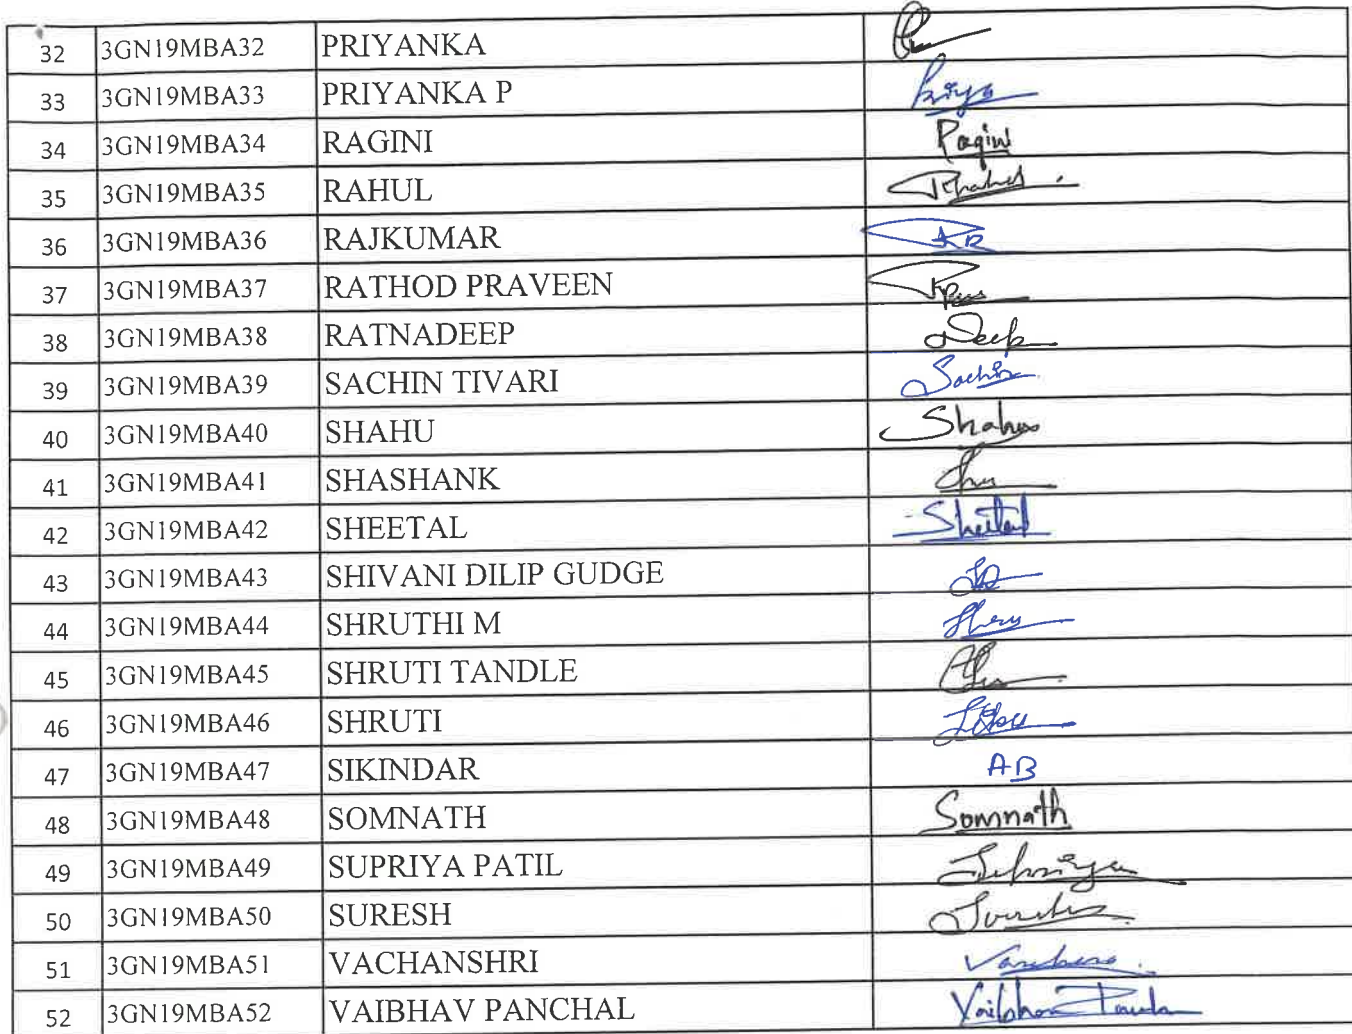 32 3GN19MBA32 PRIYANKA
33 3GN19MBA33 PRIYANKA P Priya
34 3GN19MBA34 RAGINI Ragini
35 3GN19MBA35 RAHUL
36 3GN19MBA36 RAJKUMAR
37 3GN19MBA37 RATHOD PRAVEEN
38 3GN19MBA38 RATNADEEP Deep
39 3GN19MBA39 SACHIN TIVARI Sachin
40 3GN19MBA40 SHAHU Shahu
41 3GN19MBA41 SHASHANK
42 3GN19MBA42 SHEETAL Sheetal
43 3GN19MBA43 SHIVANI DILIP GUDGE
44 3GN19MBA44 SHRUTHI M
45 3GN19MBA45 SHRUTI TANDLE
46 3GN19MBA46 SHRUTI
47 3GN19MBA47 SIKINDAR AB
48 3GN19MBA48 SOMNATH Somnath
49 3GN19MBA49 SUPRIYA PATIL
50 3GN19MBA50 SURESH
51 3GN19MBA51 VACHANSHRI
52 3GN19MBA52 VAIBHAV PANCHAL